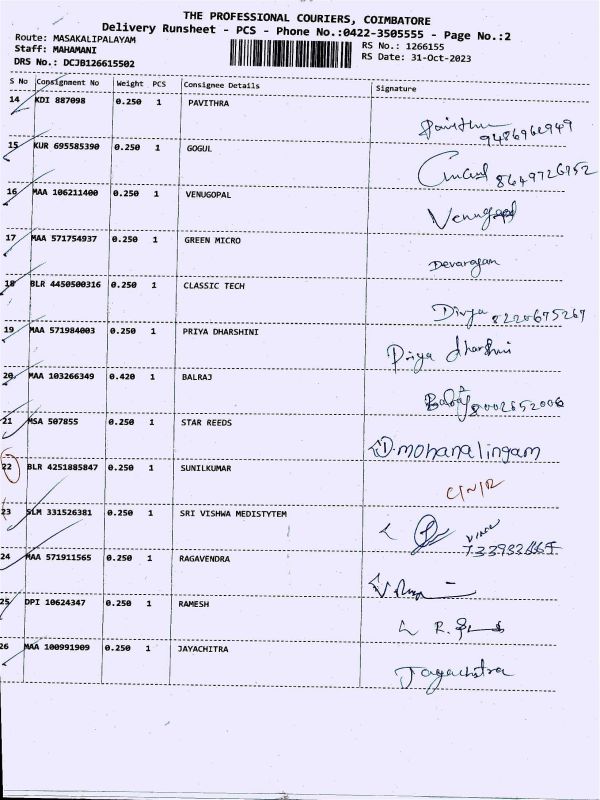 THE PROFESSIONAL COURIERS, COIMBATORE
Delivery Runsheet - PCS - Phone No.:0422-3505555 - Page No.:2
Route: MASAKALIPALAYAM
Staff: MAHAMANI
DRS No.: DCJB126615502
RS No.: 1266155
RS Date: 31-Oct-2023
S No Consignment No Weight PCS Consignee Details Signature
14 KDI 887098 0.250 1 PAVITHRA
Pavithra
9486960949
15 KUR 695585390 0.250 1 GOGUL
16 MAA 106211400 0.250 1 VENUGOPAL
Venugopal
17 MAA 571754937 0.250 1 GREEN MICRO
Devarajan
18 BLR 4450500316 0.250 1 CLASSIC TECH
Divya 8220675267
19 MAA 571984003 0.250 1 PRIYA DHARSHINI
Priya dharshni
20 MAA 103266349 0.420 1 BALRAJ
Balraj 8002652006
21 MSA 507855 0.250 1 STAR REEDS
D.mohanalingam
22 BLR 4251885847 0.250 1 SUNILKUMAR
C/N/R
23 SLM 331526381 0.250 1 SRI VISHWA MEDISTYTEM
24 MAA 571911565 0.250 1 RAGAVENDRA
25 DPI 10624347 0.250 1 RAMESH
26 MAA 100991909 0.250 1 JAYACHITRA
Jayachitra